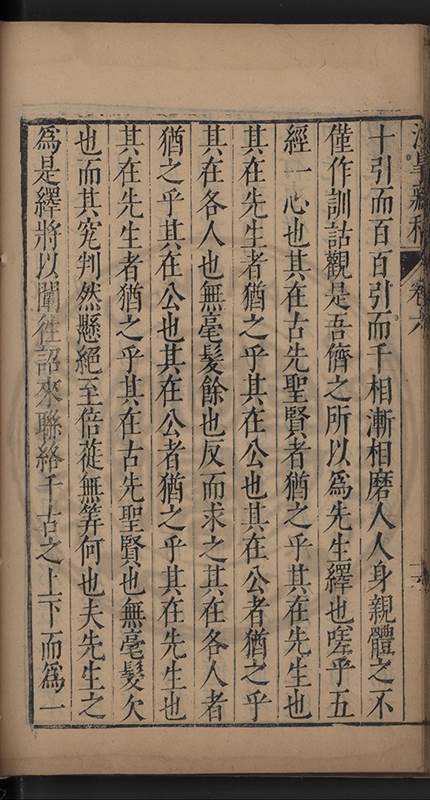 涇皋藏稿 卷六
十引而百百引而千相漸相磨人人身親體之不
僅作訓詁觀是吾儕之所以為先生繹也嗟乎五
經一心也其在古先聖賢者猶之乎其在先生也
其在先生者猶之乎其在公也其在公者猶之乎
其在各人也無毫髮餘也反而求之其在各人者
猶之乎其在公也其在公者猶之乎其在先生也
其在先生者猶之乎其在古先聖賢也無毫髮欠
也而其究判然懸絕至倍蓰無筭何也夫先生之
為是繹將以闡徃詔來聯絡千古之上下而為一